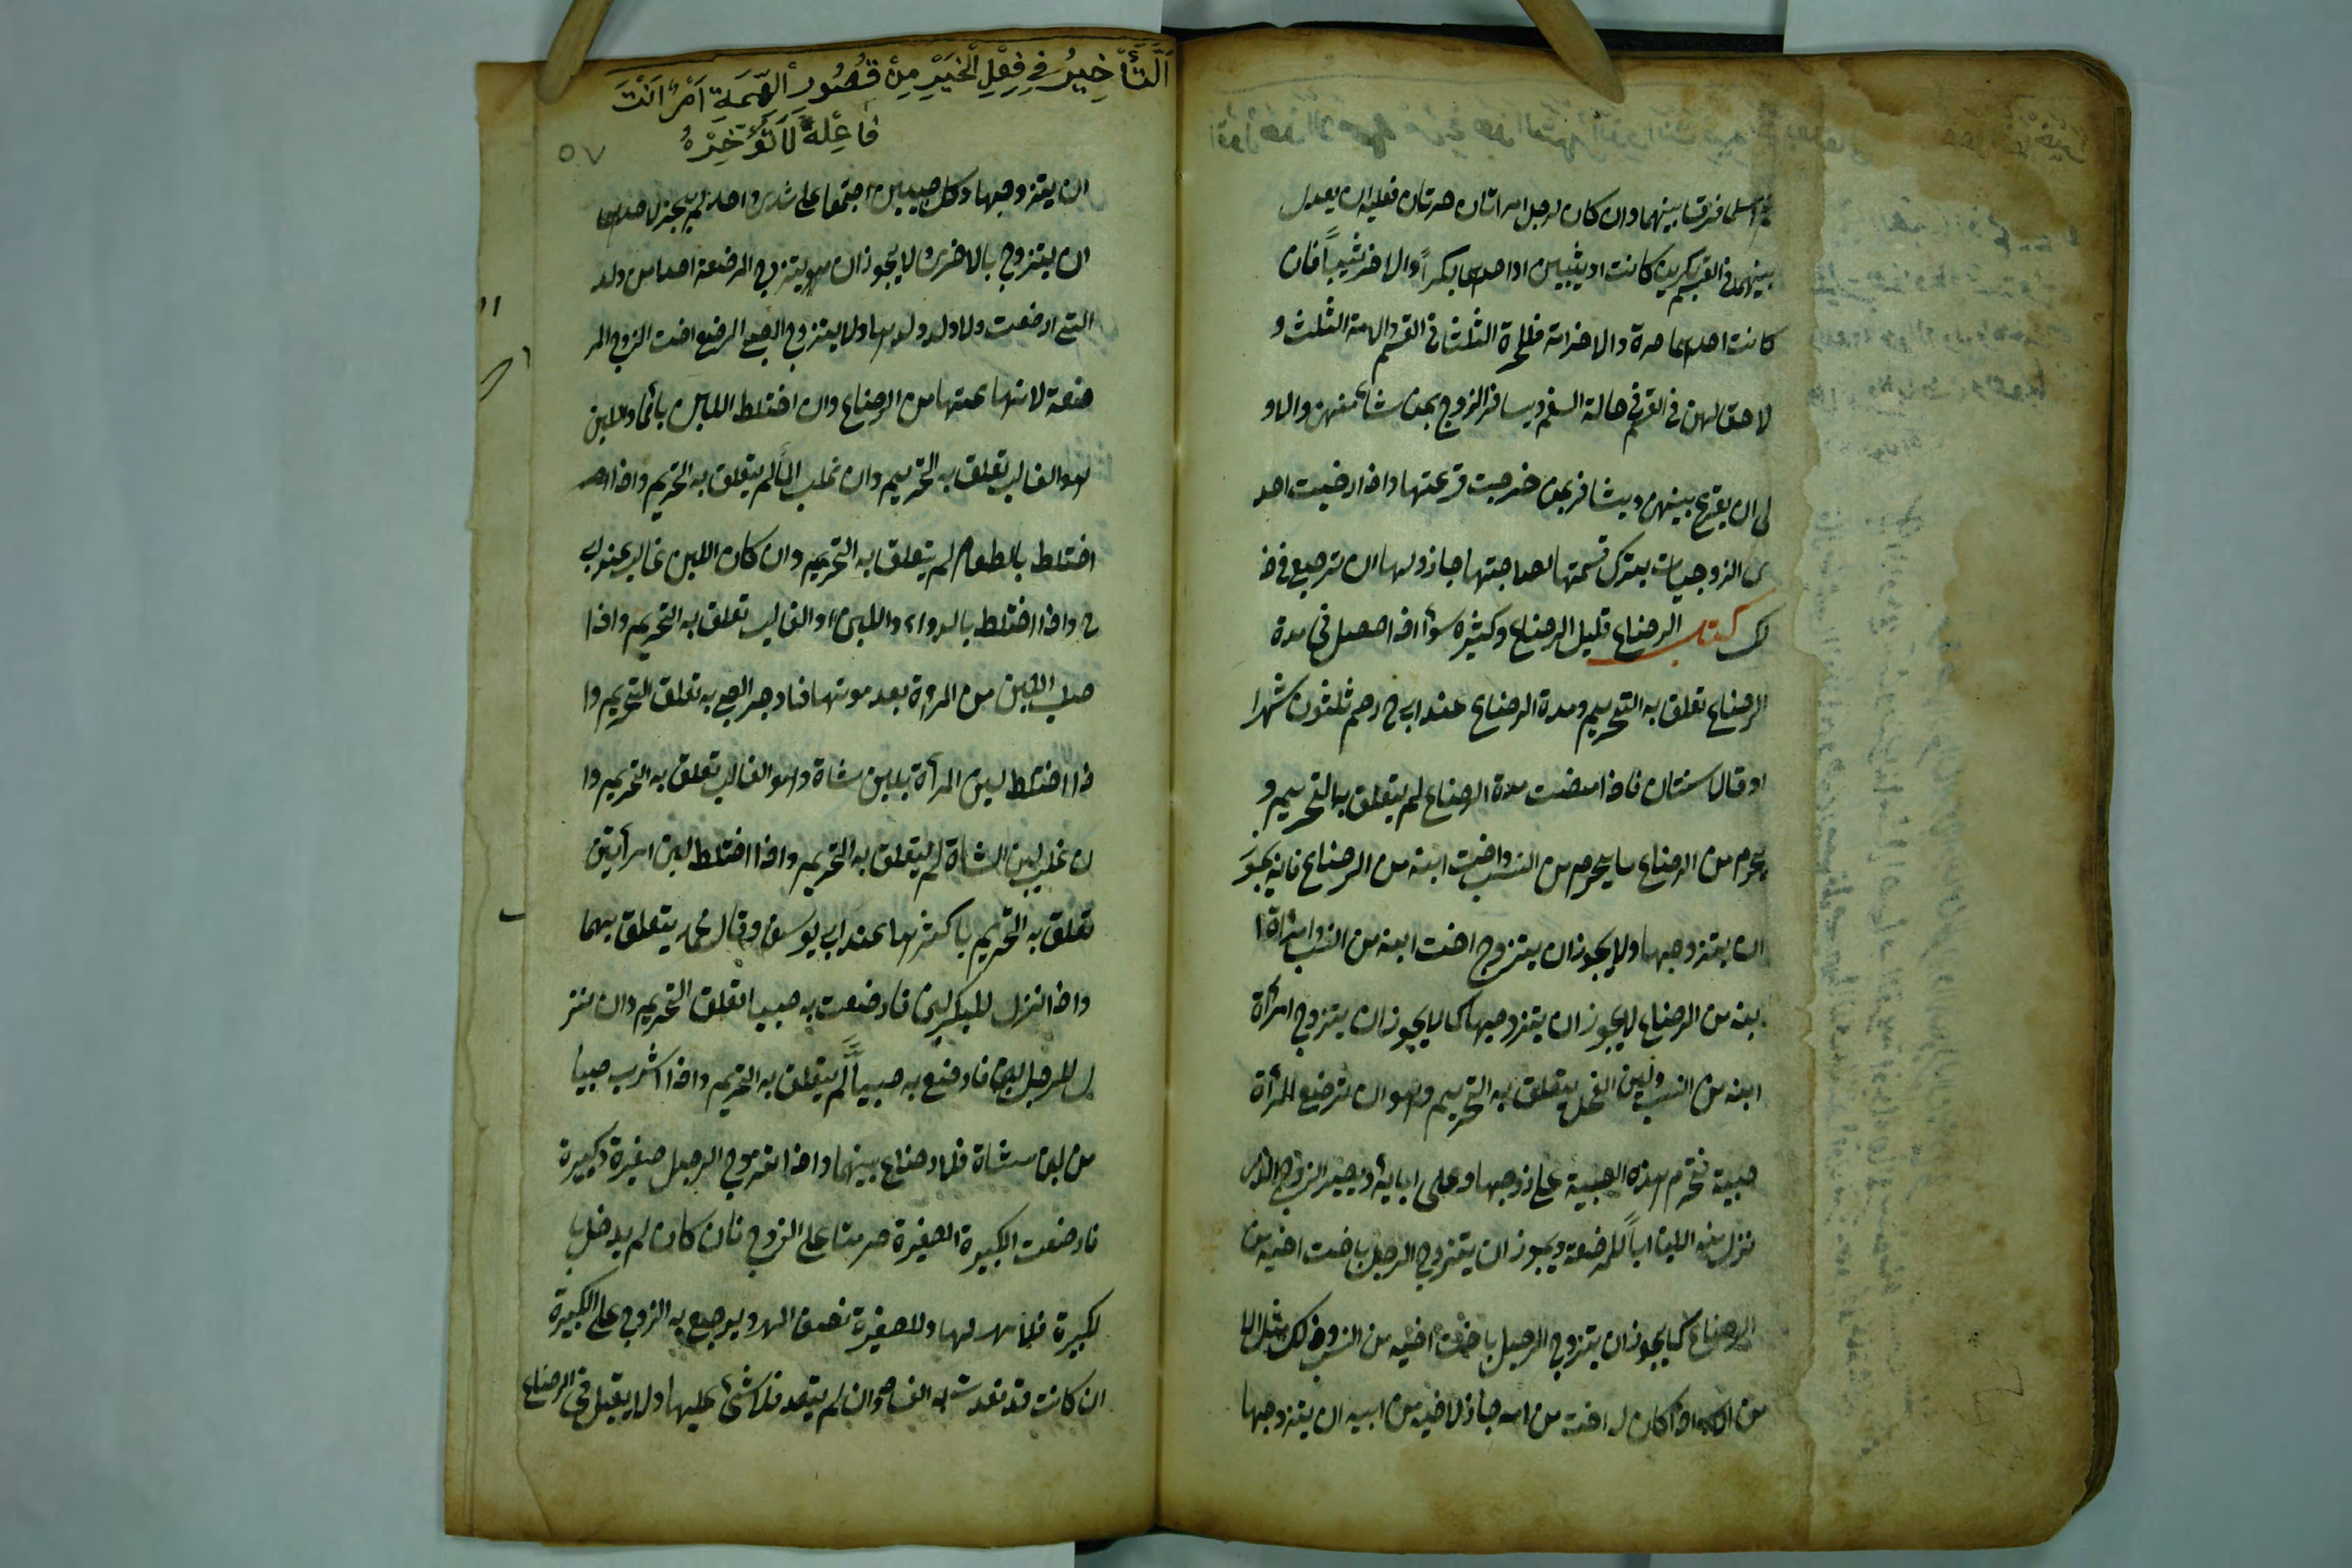 فرقنا بينهما وان كان لرجل امراتان حرتان فعليه ان يعدل
بينهما فى القسم بكرين كانت او ثيبين او احديهما بكراً والاخر ثيباً فان
كانت احديهما حرة والاخرامة فللحرة الثلثان فى القسم والامة الثلث و
لا حق لهن فى القسم فى حالة السفر ويسافر الزوج بمن شاء منهن والاو
لى ان يقرع بينهن ويسافر بمن خرجت قرعتها واذا رضيت احد
ى الزوجات بترك قسمتها لصاحبتها جاز ولها ان ترجع فى ذ
لك كتاب الرضاع قليل الرضاع وكثيره سوأ اذا حصل فى مدة
الرضاع تعلق به التحريم ومدة الرضاع عند ابى ح رحم ثلثون شهرا
او قالا سنتان فاذا مضت مدة الرضاع لم يتعلق به التحريم و
يحرم من الرضاع ما يحرم من النسب واخت ابنه من الرضاع فانه يجوز
ان يتزوجها ولا يجوز ان يتزوج اخت ابنه من النسب وامراة ا
بنه من الرضاع لا يجوز ان يتزوجها كما لا يجوز ان يتزوج امرأة
ابنه من النسب ولبن الفحل يتعلق به التحريم وهو ان ترضع المرأة
صبية فتحرم هذه الصبية على زوجها وعلى ابايه ويصير الزوج الذى
نزل منه اللبن اباً للمرضعة ويجوز ان يتزوج الرجل باخت اخيه من
الرضاع كما يجوز ان يتزوج الرجل باخت اخيه من النسب وذلك مثل الا
من اذا كان له اخت من امه جاز لاخيه من ابيه ان يتزوجها
اَلتَّأْخِيرُ فِى فِعْلِ الْخَيْرِ مِنْ قُصُورِ الْهِمَّةِ اَمْرٌ اَنْتَ
فَاعِلُهُ لَا تُؤَخِّرْهُ
٥٧
ان يتزوجها وكل صبيين اجتمعا على ثدى واحد لم يجز لاحدهما
ان يتزوج بالاخرى ولا يجوز ان يتزوج المرضعة احدا من ولد
التى ارضعت ولا ولد ولدها ولا يتزوج الصبى المرضع اخت الزوج المر
ضعة لانها عمتها من الرضاع وان اختلط اللبن بالمأ واللبن
هو الغالب يتعلق به التحريم وان غلب المأ لم يتعلق به التحريم واذا
اختلط بالطعام لم يتعلق به التحريم وان كان اللبن غالبا عند ابى
ح واذا اختلط بالدواء واللبن هو الغالب تعلق به التحريم واذا
حلب اللبن من المرأة بعد موتها فاوجر الصبى به تعلق التحريم وا
ذا اختلط لبن المرأة بلبن شاة وهو الغالب تعلق به التحريم وا
ن غلب لبن الشاة لم يتعلق به التحريم واذا اختلط لبن امرأتين
تعلق به التحريم باكثرهما عند ابى يوسف وقال محمد يتعلق بهما
واذا نزل للبكر لبن فارضعت به صبيا تعلق التحريم وان نز
ل للرجل لبن فارضع به صبياً لم يتعلق به التحريم واذا شرب صبيا
من لبن شاة فلا رضاع بينهما واذا تزوج الرجل صغيرة وكبيرة
فارضعت الكبيرة الصغيرة حرمتا على الزوج فان كان لم يدخل با
لكبيرة فلا مهر لها وللصغيرة نصف المهر ويرجع به الزوج على الكبيرة
ان كانت قد تعمدت به الفساد وان لم يتعمد فلا شئ عليها ولا يقبل فى الرضاع